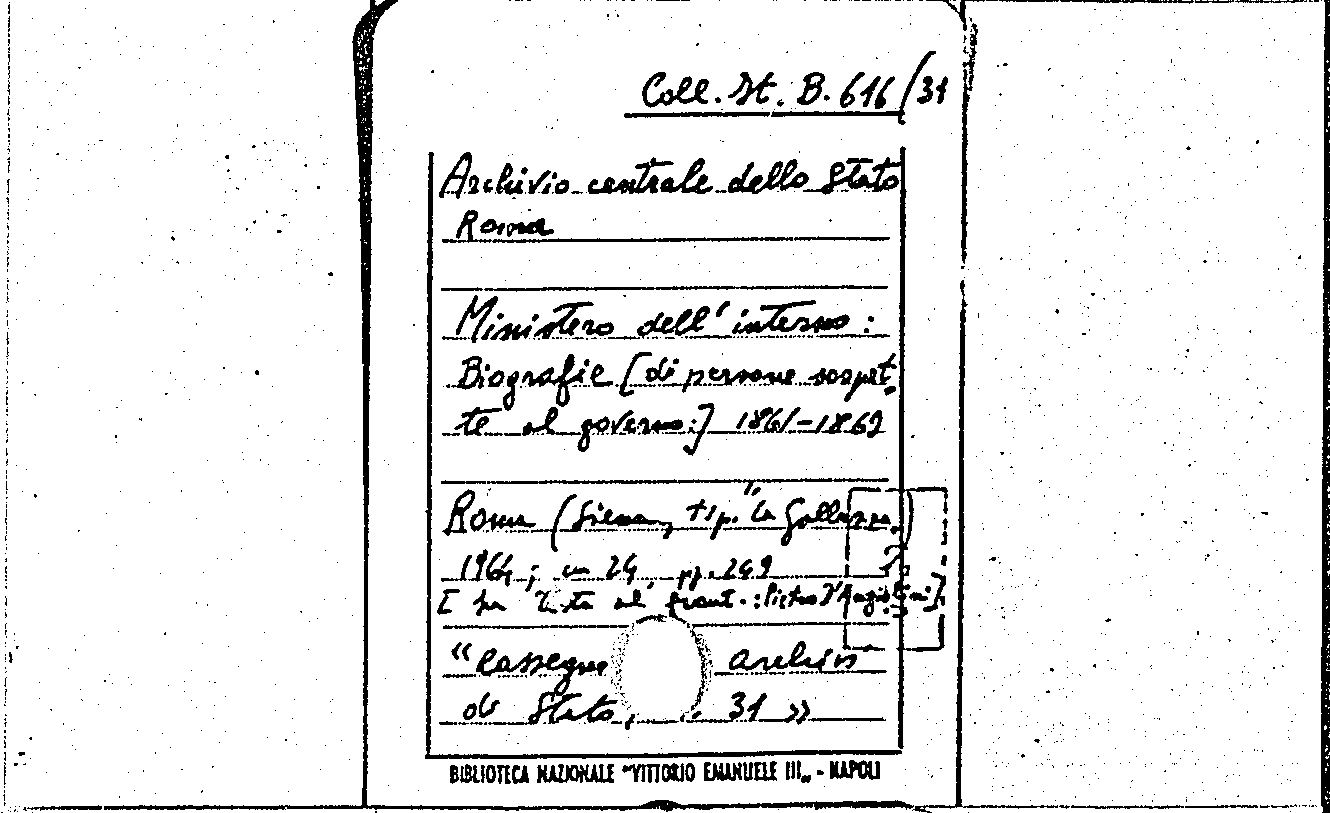 Coll. It. B. 616/31
Archivio centrale dello Stato
Roma
Ministero dell'interno:
Biografie [di persone sospet-
te al governo:] 1861-1869
Roma (Siena, tip. "La Galluzza")
1964; cm 24 pp. 249
al front.: Pietro D'Angiolini]
"Rassegna archivi
di Stato, 31 »
BIBLIOTECA NAZIONALE "VITTORIO EMANUELE III„ - NAPOLI